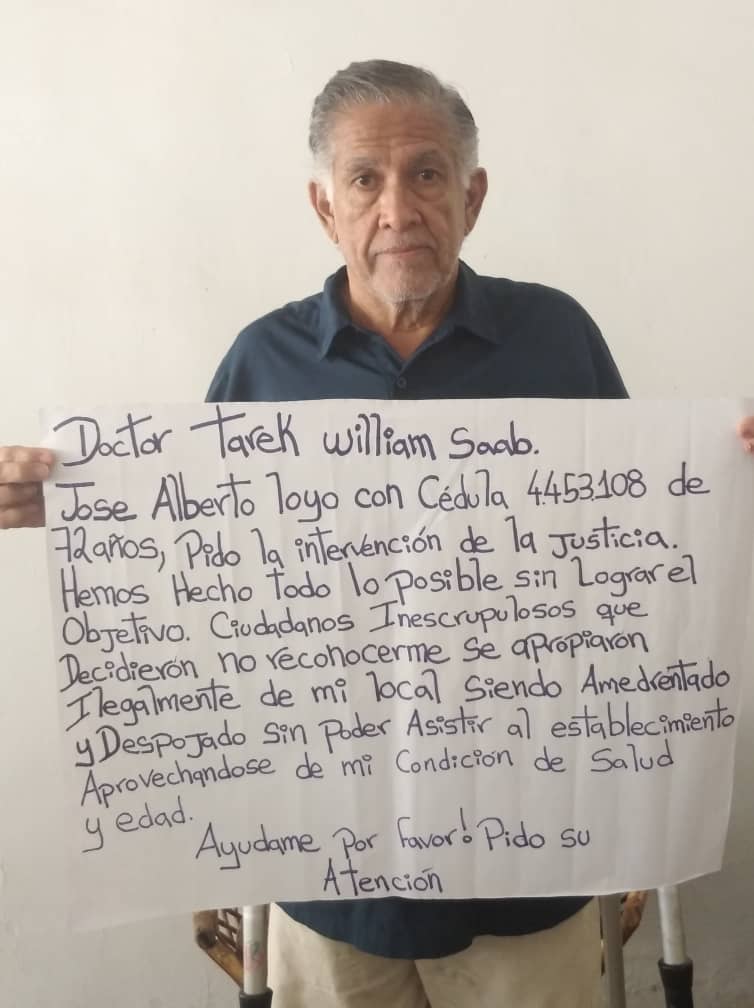 Doctor Tarek William Saab.
Jose Alberto loyo con Cédula 4.453.108 de
72años, Pido la intervención de la Justicia.
Hemos Hecho todo lo posible sin Lograr el
Objetivo. Ciudadanos Inescrupulosos que
Decidierón no reconocerme se apropiaron
Ilegalmente de mi local siendo Amedrentado
y Despojado sin Poder Asistir al establecimiento
Aprovechandose de mi Condición de Salud
y edad.
Ayudame Por favor! Pido su
Atención